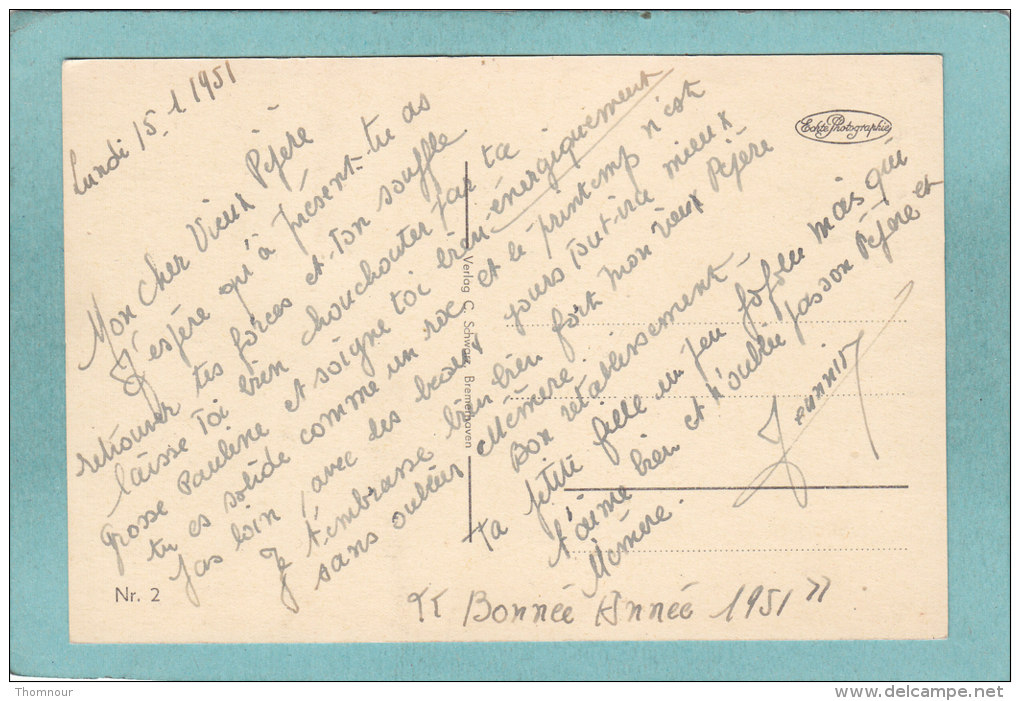 Lundi 15-1 1951
Mon cher Vieux Péjère
J'espère qu'à présent tu as
retrouver tes forces et ton souffle
laisse toi bien chouchouter par ta
grosse Pauline et soigne toi bien énergiquement
tu es solide comme un roc et le printemp n'est
pas loin, avec des beaux jours tout ira mieux
Je t'embrasse bien bien fort mon vieux Péjère
sans oublier Mémère.
Bon rétablissement-
ta petite fille un peu fofolle mais qui
t'aime bien et n'oublie pas son Péjère et
Mémère.
"Bonnée Année 1951"
Echte Photographie
Verlag C. Schwarz, Bremerhaven
Nr. 2
Thomnour
www.delcampe.net